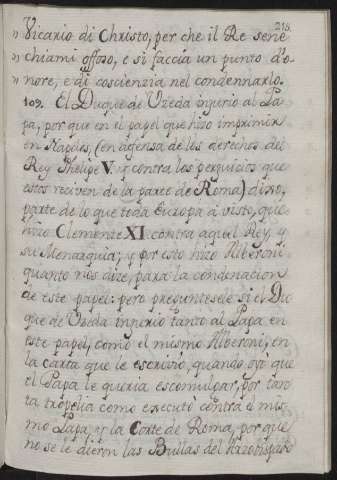 218.
" Vicario di Christo, per che il Re sene
" chiami offoso, e si faccia un punto d'o-
" nore, e di coscienzia nel condennarlo.
109. El Duque de Uzeda injurio al Pa-
pa, por que en el papel que hizo imprimir
en Napoles, (en defensa de los derechos del
Rey Phelipe V. y contra los perjuicios que
estos reciven de la parte de Roma) dixo,
parte de lo que toda Europa à visto, que
hizo Clemente XI. contra aquel Rey, y
su Monarquia; y por esto hizo Alberoni
quanto nos dize, para la condenacion
de este papel: pero preguntesele si el Du-
que de Uzeda injurio tanto al Papa en
este papel, como el mismo Alberoni, en
la carta que le escrivio, quando oyò que
el Papa le queria escomulgar, por tan-
ta tropelia como executò contra el mis-
mo Papa, y la Corte de Roma, por que
no se le dieron las Bullas del Arzobispado